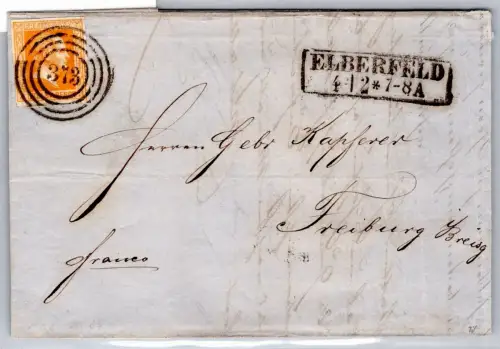 373
ELBERFELD
4 12 * 7-8 A
Herren Gebr Kapferer
Freiburg i/Breisg
franco